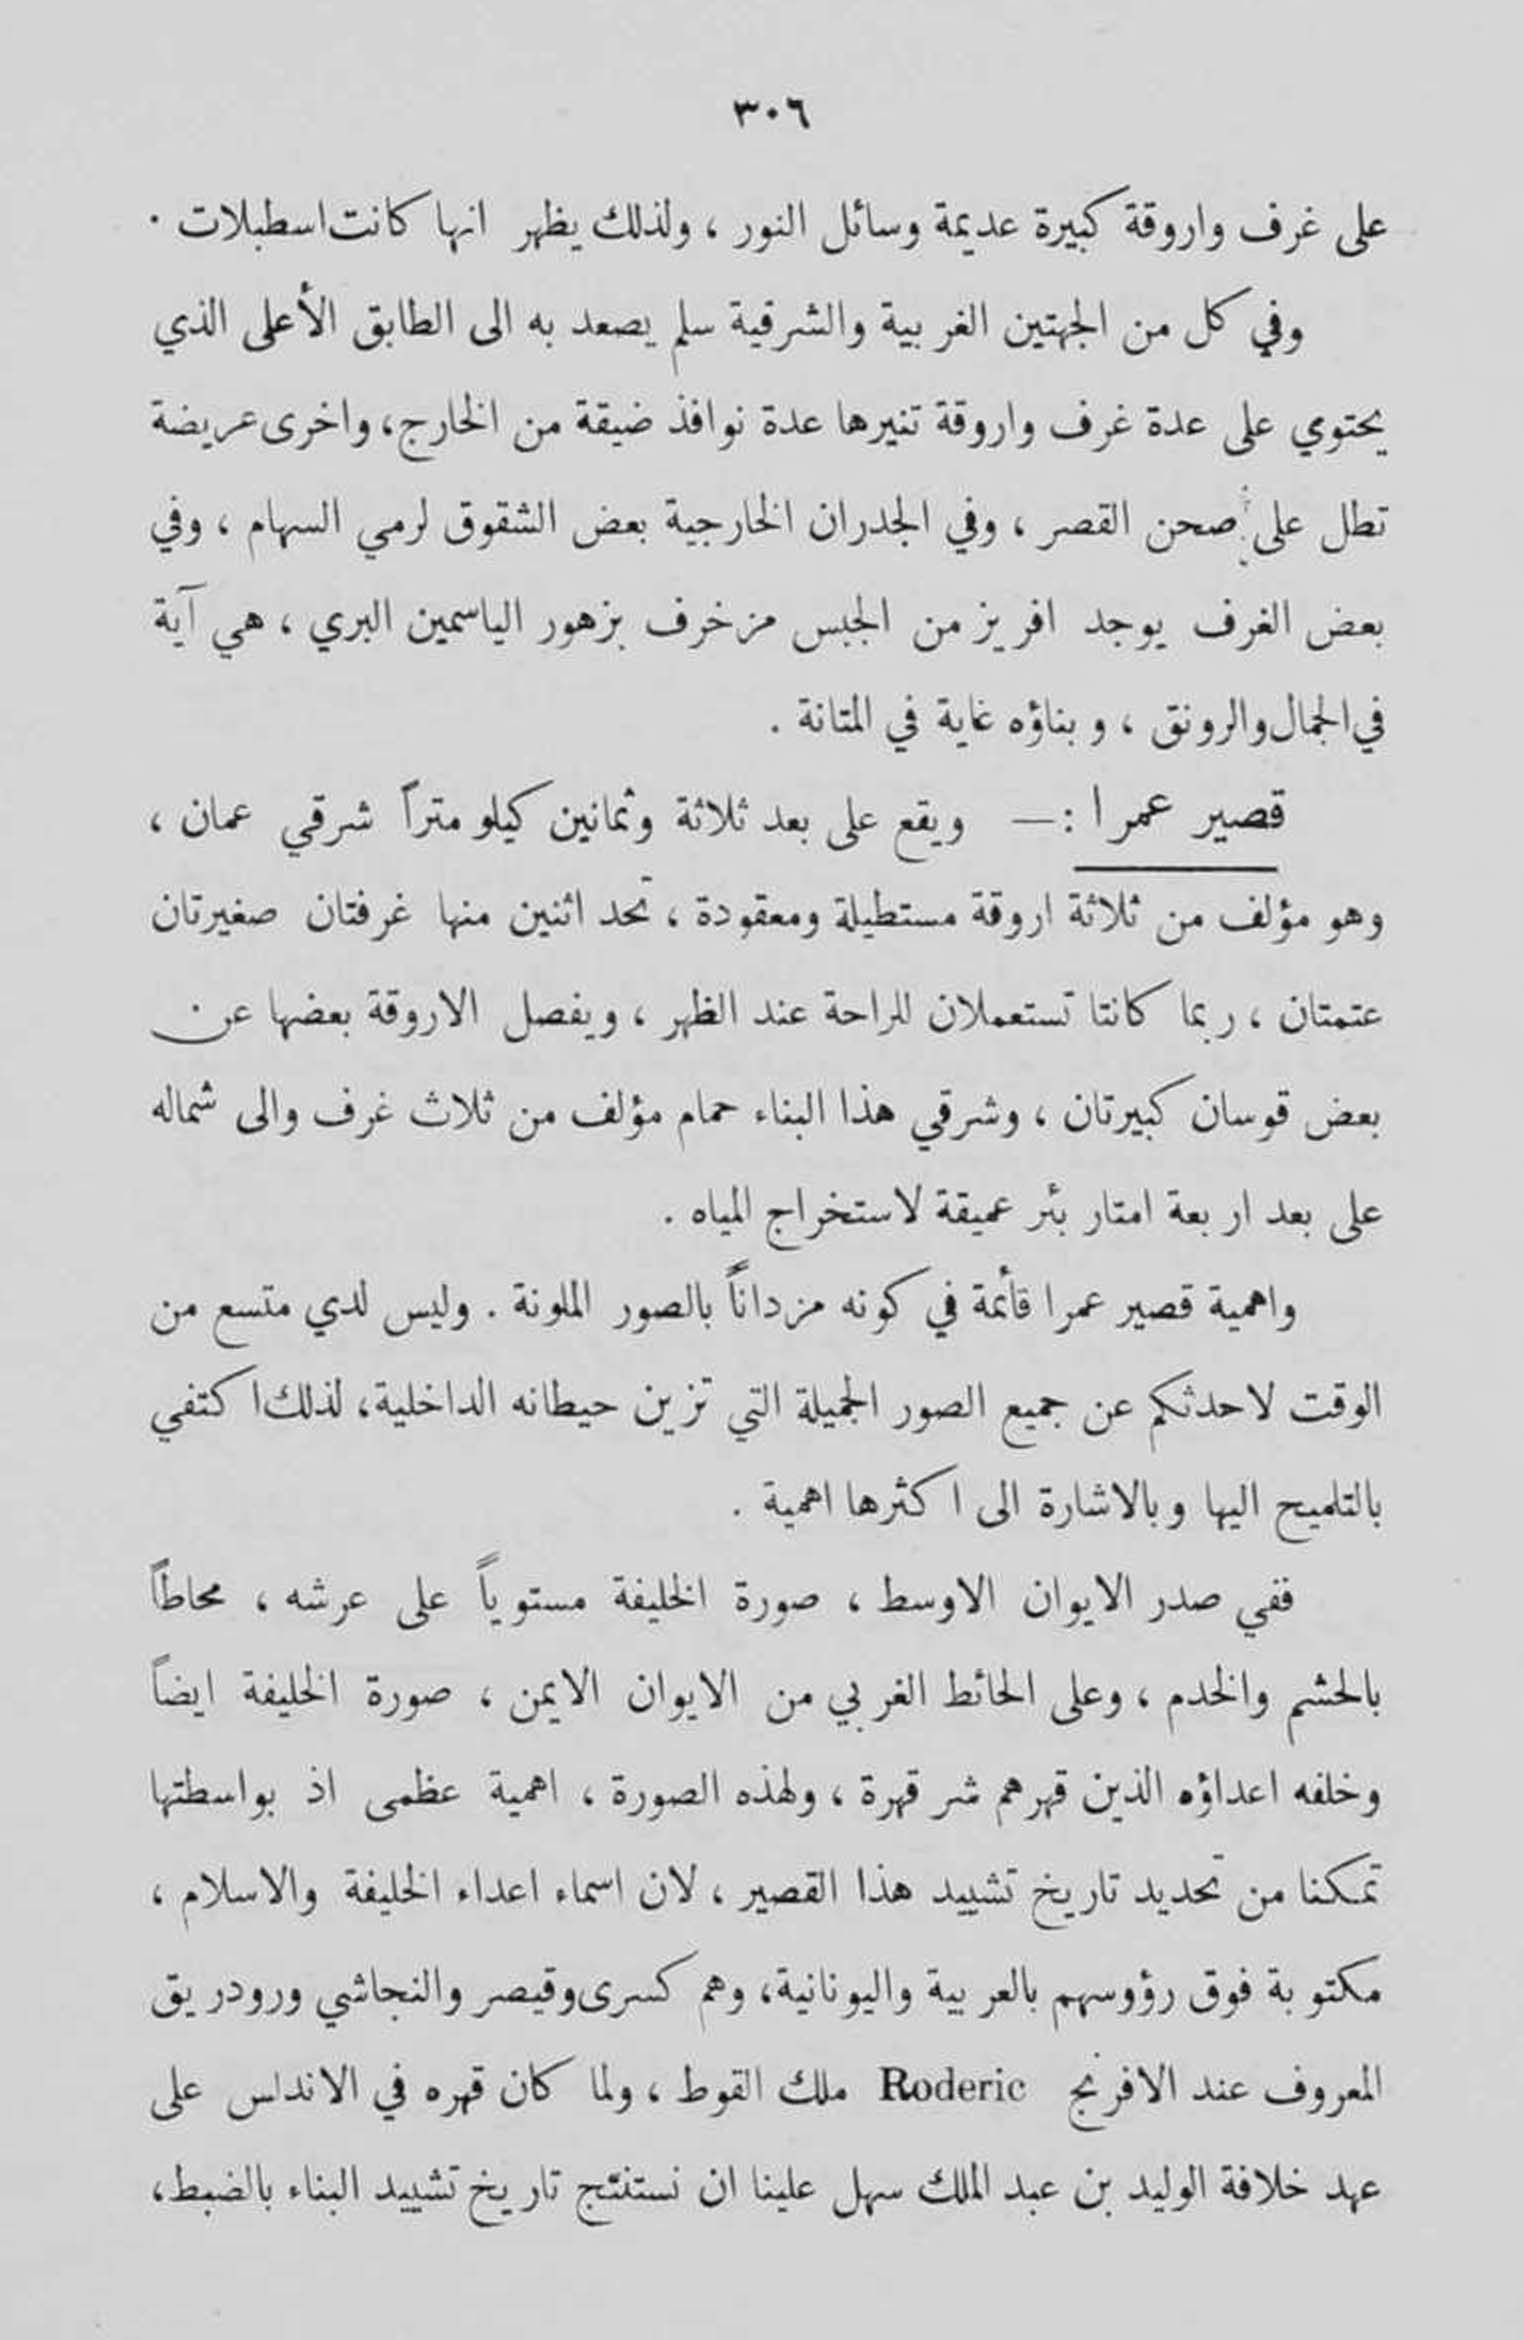 ٣٠٦
على غرف واروقة كبيرة عديمة وسائل النور ، ولذلك يظهر انها كانت اسطبلات .
وفي كل من الجهتين الغربية والشرقية سلم يصعد به الى الطابق الأعلى الذي
يحتوي على عدة غرف واروقة تنيرها عدة نوافذ ضيقة من الخارج، واخرى عريضة
تطل على صحن القصر ، وفي الجدران الخارجية بعض الشقوق لرمي السهام ، وفي
بعض الغرف يوجد افريز من الجبس مزخرف بزهور الياسمين البري ، هي آية
في الجمال والرونق ، وبناؤه غاية في المتانة .
قصير عمرا :— ويقع على بعد ثلاثة وثمانين كيلو متراً شرقي عمان ،
وهو مؤلف من ثلاثة اروقة مستطيلة ومعقودة ، تحد اثنين منها غرفتان صغيرتان
عتمتان ، ربما كانتا تستعملان للراحة عند الظهر ، ويفصل الاروقة بعضها عن
بعض قوسان كبيرتان ، وشرقي هذا البناء حمام مؤلف من ثلاث غرف والى شماله
على بعد اربعة امتار بئر عميقة لاستخراج المياه .
واهمية قصير عمرا قأئمة في كونه مزداناً بالصور الملونة . وليس لدي متسع من
الوقت لاحدثكم عن جميع الصور الجميلة التي تزين حيطانه الداخلية، لذلك اكتفي
بالتلميح اليها وبالاشارة الى اكثرها اهمية .
ففي صدر الايوان الاوسط ، صورة الخليفة مستوياً على عرشه ، محاطاً
بالحشم والخدم ، وعلى الحائط الغربي من الايوان الايمن ، صورة الخليفة ايضاً
وخلفه اعداؤه الذين قهرهم شر قهرة ، ولهذه الصورة ، اهمية عظمى اذ بواسطتها
تمكنا من تحديد تاريخ تشييد هذا القصير ، لان اسماء اعداء الخليفة والاسلام ،
مكتوبة فوق رؤوسهم بالعربية واليونانية، وهم كسرى وقيصر والنجاشي ورودريق
المعروف عند الافرنج Roderic ملك القوط ، ولما كان قهره في الاندلس على
عهد خلافة الوليد بن عبد الملك سهل علينا ان نستنتج تاريخ تشييد البناء بالضبط،